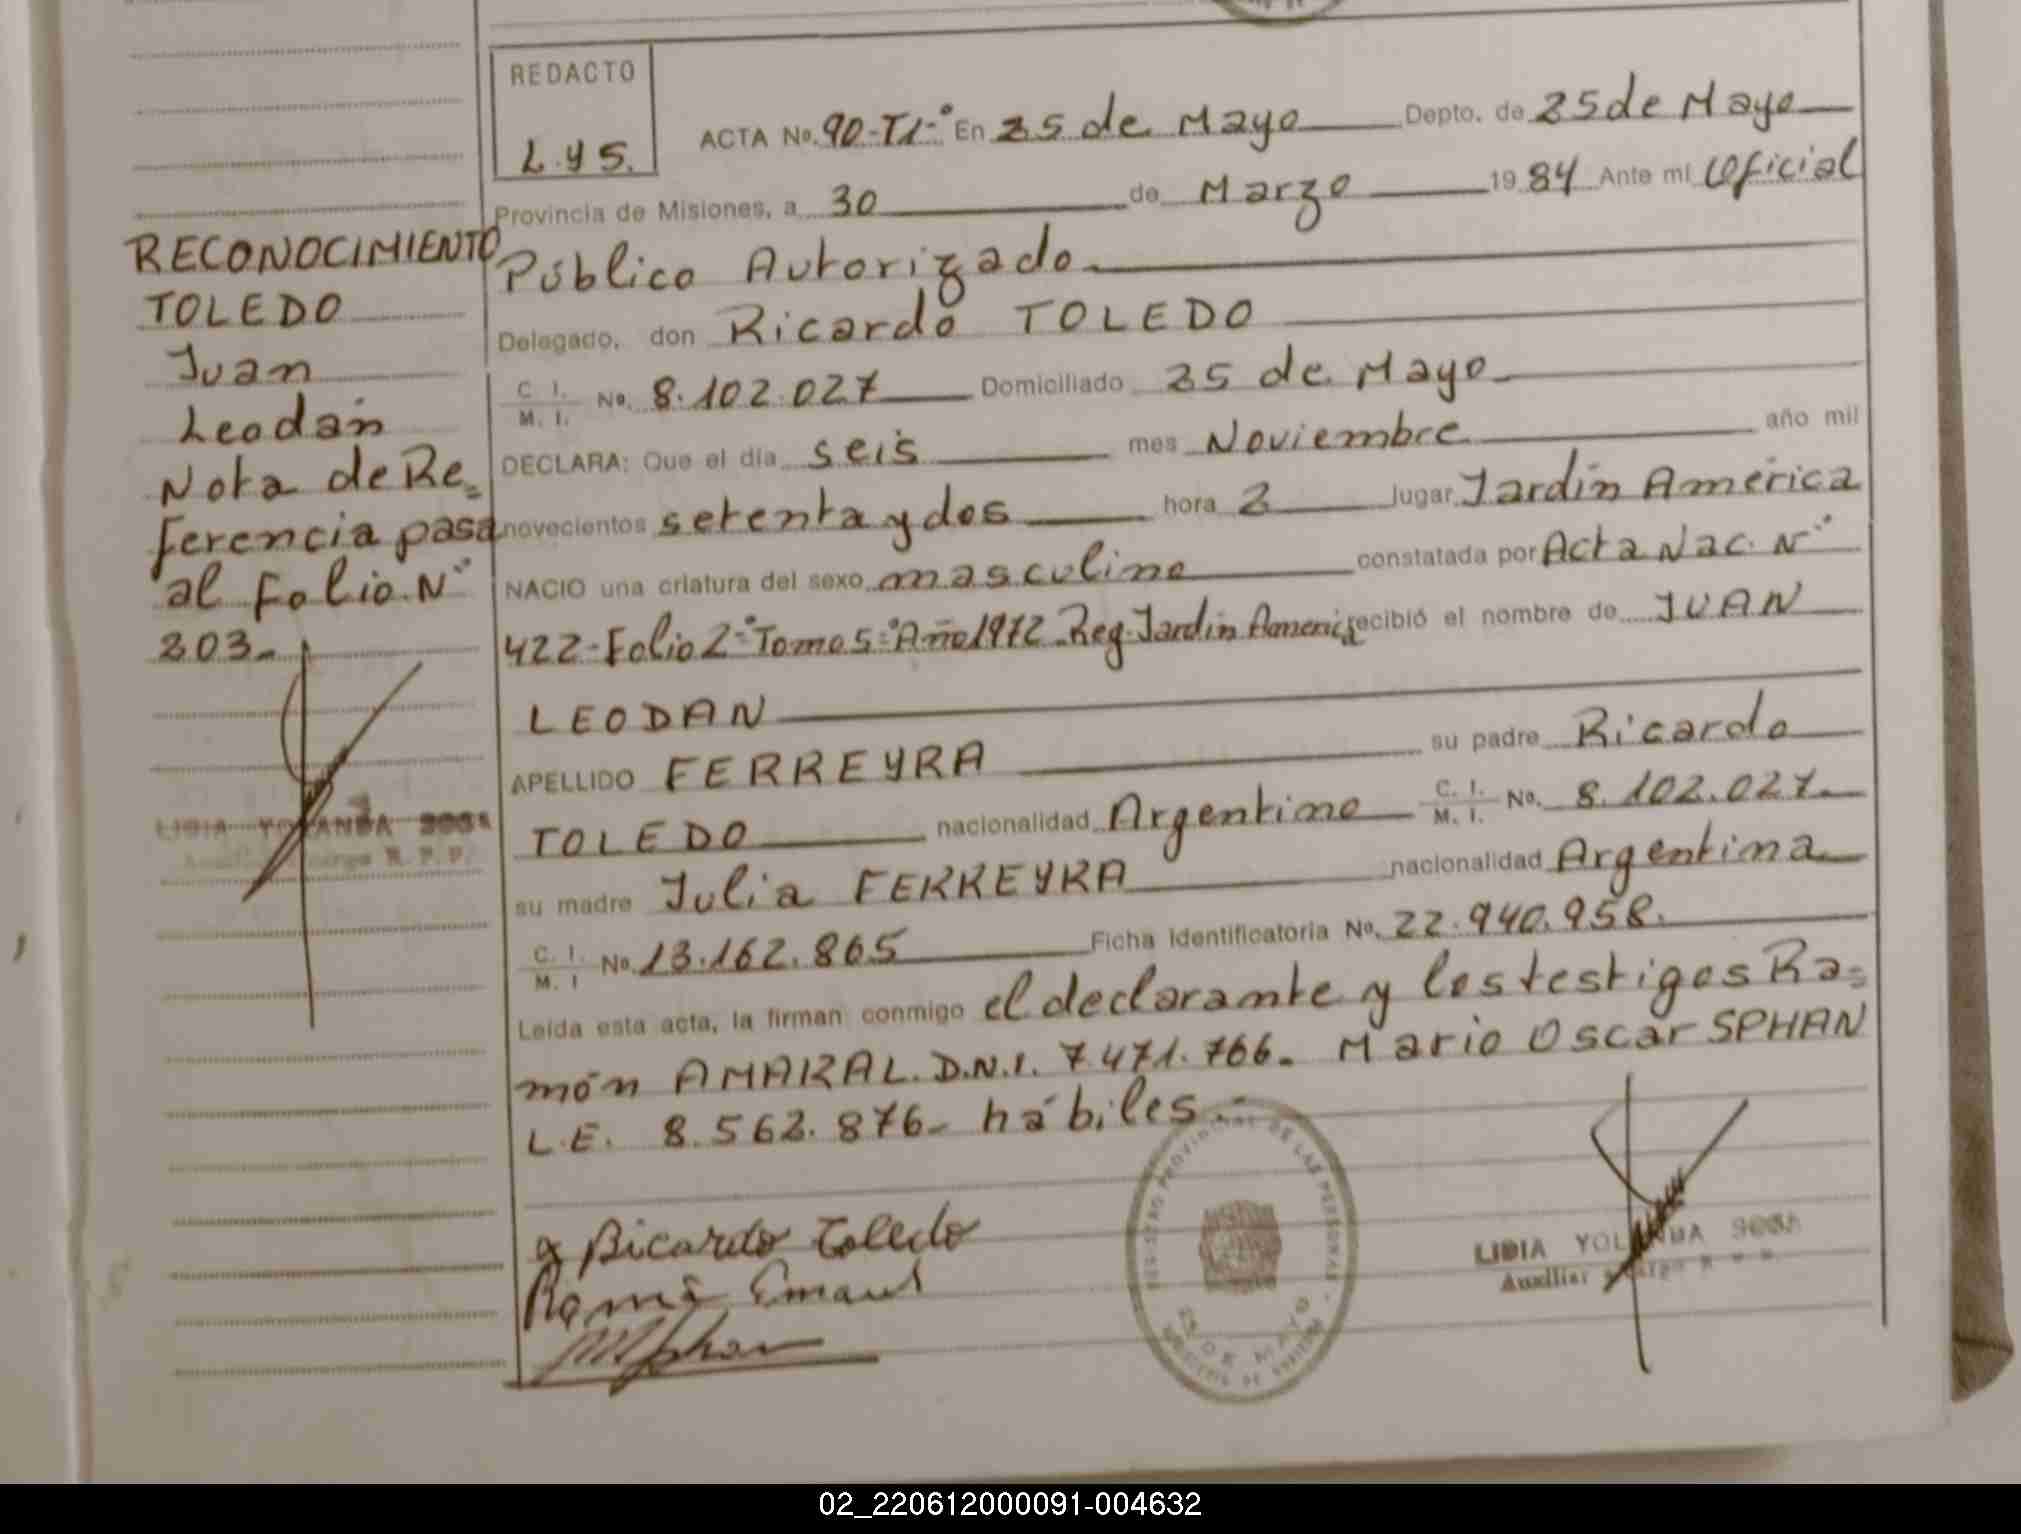 RECONOCIMIENTO
TOLEDO
Juan
Leodán
Nota de Re=
ferencia pasa
al Folio Nº
203-
LIDIA YOLANDA SOSA
REDACTO
L.Y S.
ACTA No. 90-TI-º En 25 de Mayo Depto. de 25 de Mayo
Provincia de Misiones, a 30 de Marzo 1984 Ante mi Oficial
Público Autorizado
Delegado, don Ricardo TOLEDO
C. I. / M. I. No. 8.102.027 Domiciliado 25 de Mayo
DECLARA: Que el día seis mes Noviembre año mil
novecientos setenta y dos hora 2 lugar Jardín América
NACIO una criatura del sexo masculino constatada por Acta Nac. Nº
422-Folio 2-º Tomo 5-º Año 1972 Reg. Jardín America recibió el nombre de JUAN
LEODAN
APELLIDO FERREYRA su padre Ricardo
TOLEDO nacionalidad Argentino C. I. / M. I. No. 8.102.027
su madre Julia FERREYRA nacionalidad Argentina
C. I. / M. I No. 13.162.865 Ficha Identificatoria No. 22.940.958.
Leída esta acta, la firman conmigo el declarante y los testigos Ra=
món AMARAL. D.N.I. 7.471.766. Mario Oscar SPHAN
L.E. 8.562.876- hábiles.-
REGISTRO PROVINCIAL DE LAS PERSONAS
25 DE MAYO
x Ricardo Toledo
LIDIA YOLANDA SOSA
Auxiliar
02_220612000091-004632